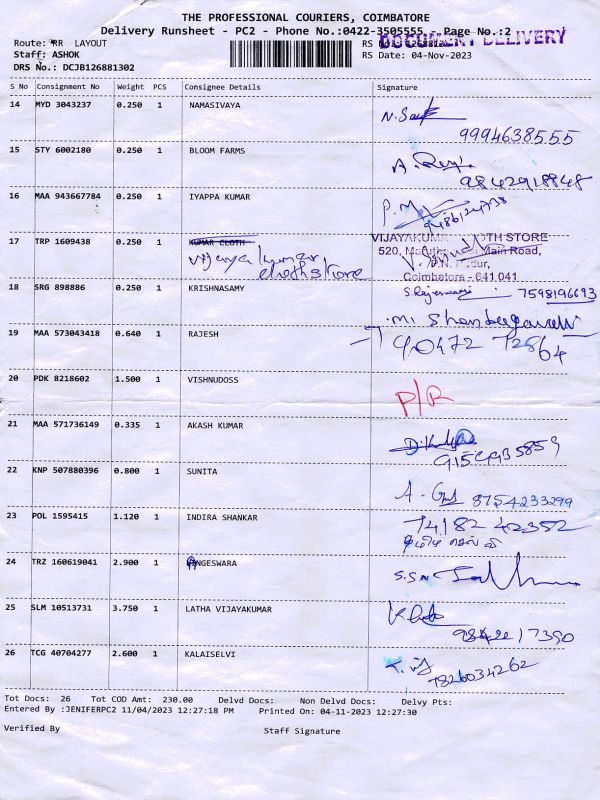 THE PROFESSIONAL COURIERS, COIMBATORE
Delivery Runsheet - PC2 - Phone No.:0422-3505555 Page No.:2
DOCUMENT DELIVERY
Route: RR LAYOUT
Staff: ASHOK RS Date: 04-Nov-2023
DRS No.: DCJB126881302
S No Consignment No Weight PCS Consignee Details Signature
14 MYD 3043237 0.250 1 NAMASIVAYA
9994638555
15 STY 6002180 0.250 1 BLOOM FARMS
9842918848
16 MAA 943667784 0.250 1 IYAPPA KUMAR P.M
17 TRP 1609438 0.250 1 KUMAR CLOTH
Vijaya kumar
cloth store
VIJAYAKUMAR CLOTH STORE
520, Main Road,
Coimbatore - 641 041
18 SRG 898886 0.250 1 KRISHNASAMY S.Rajeswari 7598196693
19 MAA 573043418 0.640 1 RAJESH
90472 72864
20 PDK 8218602 1.500 1 VISHNUDOSS
P/R
21 MAA 571736149 0.335 1 AKASH KUMAR
22 KNP 507880396 0.800 1 SUNITA
8754233299
23 POL 1595415 1.120 1 INDIRA SHANKAR 74182 42352
24 TRZ 160619041 2.900 1 ANGESWARA
25 SLM 10513731 3.750 1 LATHA VIJAYAKUMAR
26 TCG 40704277 2.600 1 KALAISELVI
7826034262
Tot Docs: 26 Tot COD Amt: 230.00 Delvd Docs: Non Delvd Docs: Delvy Pts:
Entered By :JENIFERPC2 11/04/2023 12:27:18 PM Printed On: 04-11-2023 12:27:30
Verified By Staff Signature